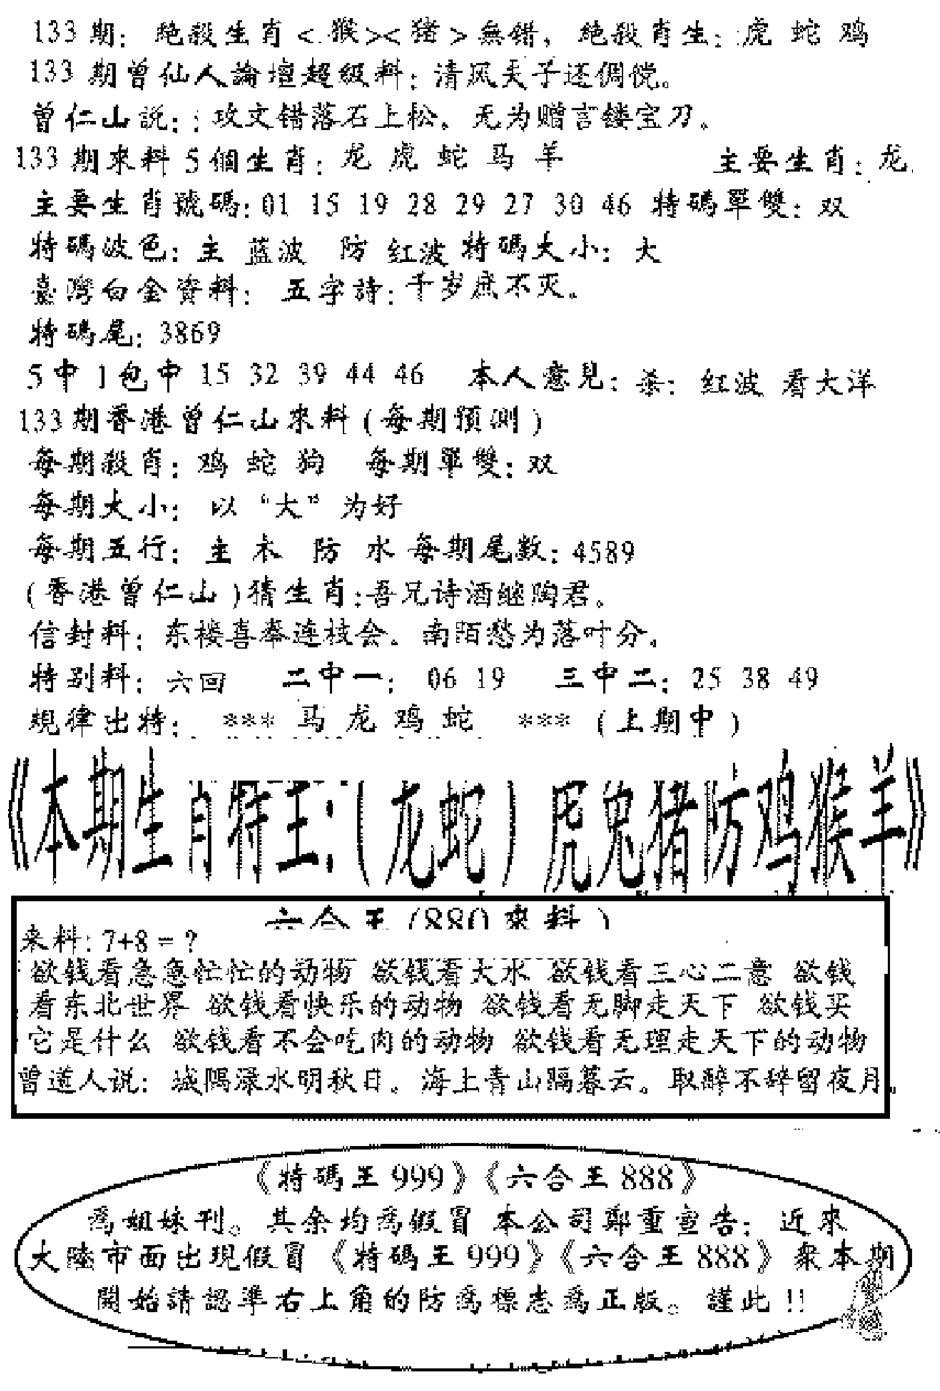 133期: 绝殺生肖<猴><猪>無错, 绝殺肖生: 虎 蛇 鸡
133期曾仙人論壇超級料: 清风天子还倜傥。
曾仁山說: 攻文错落石上松。无为赠言镂宝刀。
133期來料5個生肖: 龙 虎 蛇 马 羊 主要生肖: 龙
主要生肖號碼: 01 15 19 28 29 27 30 46 特碼單雙: 双
特碼波色: 主 蓝波 防 红波 特碼大小: 大
臺灣白金資料: 五字詩: 千岁底不灭。
特碼尾: 3869
5中1包中 15 32 39 44 46 本人意見: 杀: 红波 看大洋
133期香港曾仁山來料(每期預測)
每期殺肖: 鸡 蛇 狗 每期單雙: 双
每期大小: 以“大”为好
每期五行: 主 木 防 水 每期尾数: 4589
(香港曾仁山)猜生肖: 吾兄诗酒继陶君。
信封料: 东楼喜奉连枝会。南陌愁为落叶分。
特别料: 六回 二中一: 06 19 三中二: 25 38 49
規律出特: *** 马 龙 鸡 蛇 *** (上期中)
《本期生肖特王:(龙蛇)虎兔猪防鸡猴羊》
六合王(880來料)
来料: 7+8=?
欲钱看急急忙忙的动物 欲钱看大水 欲钱看三心二意 欲钱
看东北世界 欲钱看快乐的动物 欲钱看无脚走天下 欲钱买
它是什么 欲钱看不会吃肉的动物 欲钱看无理走天下的动物
曾道人说: 城隅渌水明秋日。海上青山隔暮云。取醉不辞留夜月。
《特碼王999》《六合王888》
爲姐妹刊。其余均爲假冒 本公司鄭重宣告: 近來
大陸市面出現假冒《特碼王999》《六合王888》衆本期
開始請認準右上角的防爲標志爲正版。謹此!!